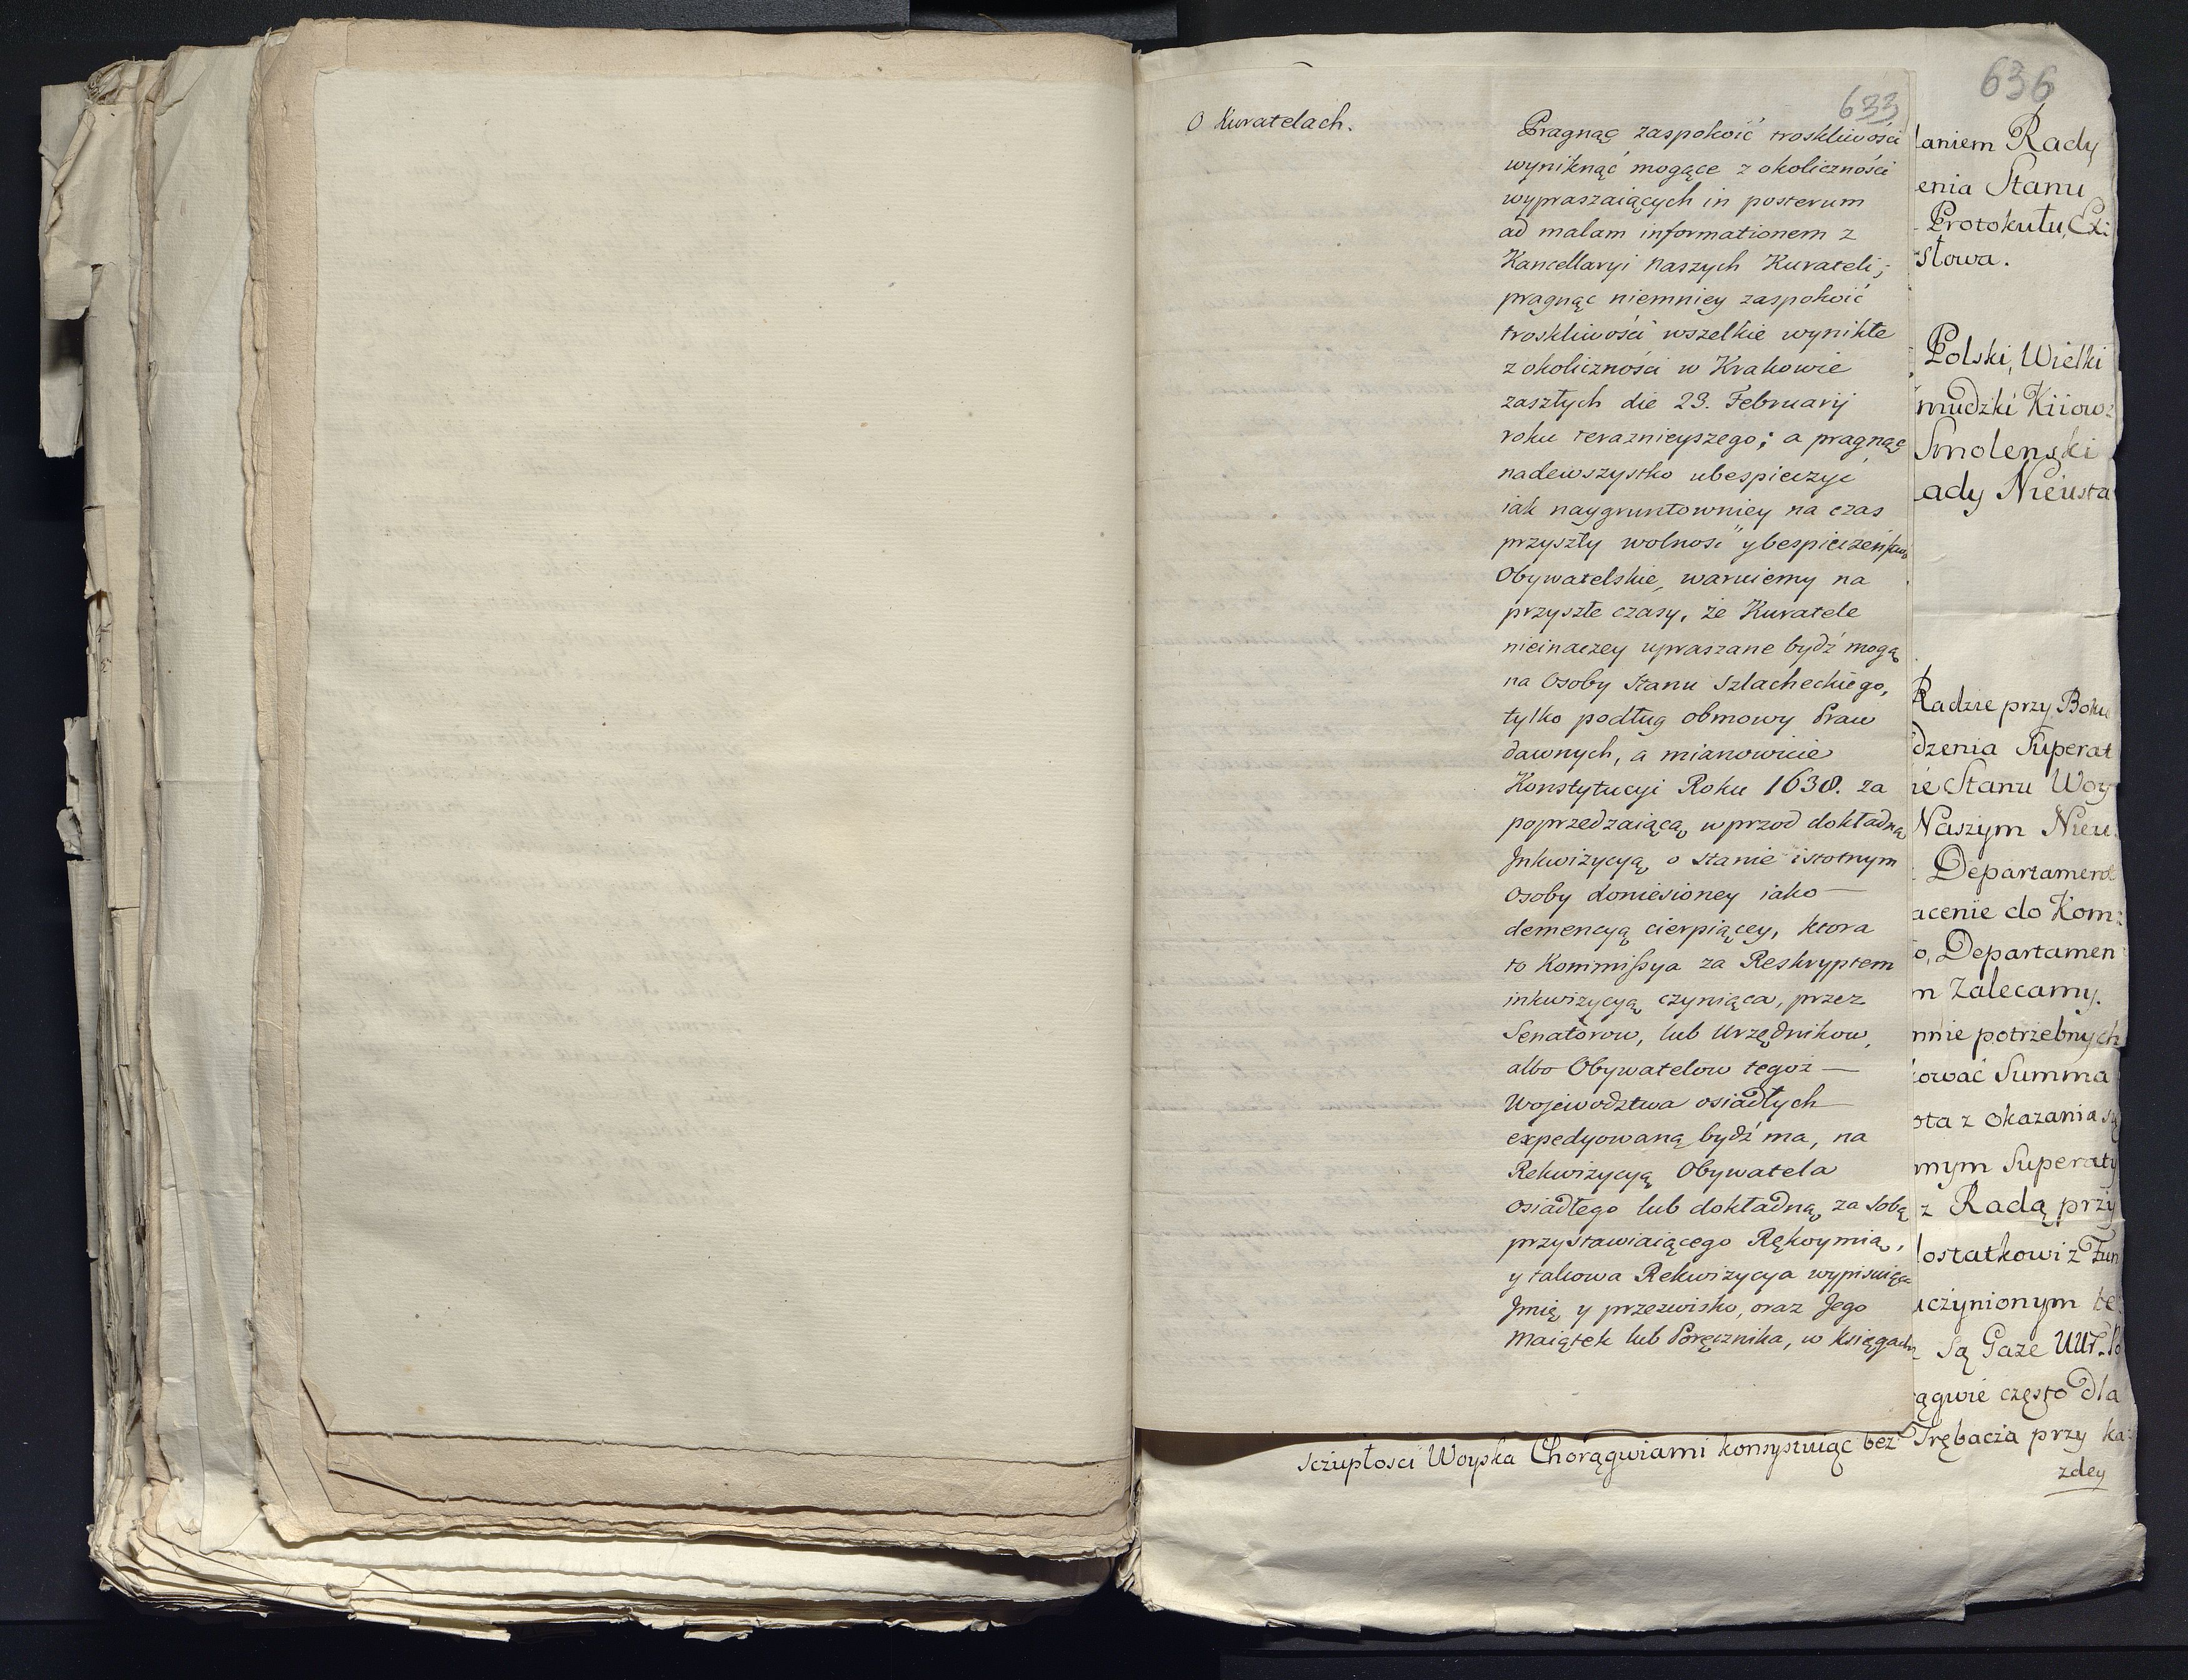 O Kuratelach.
633
Pragnąc zaspokoić troskliwości
wyniknąć mogące z okoliczności
wypraszaiących in posterum
ad malam informationem z
Kancellaryi naszych Kurateli;
pragnąc niemniey zaspokoić
troskliwości wszelkie wynikłe
z okoliczności w Krakowie
zaszłych die 23. Februarij
roku terazniejszego; a pragnąc
nadewszystko ubespieczyć
iak naygruntowniey na czas
przyszły wolnosć y bespieczeństwo
Obywatelskie, waruiemy na
przyszłe czasy, że Kuratele
nieinaczey upraszane bydź mogą
na Osoby Stanu Szlacheckiego,
tylko podług obmowy Praw
dawnych, a mianowicie
Konstytucyi Roku 1638. za
poprzedzaiącą wprzod dokładną
Jnkwizycyą o stanie istotnym
Osoby doniesioney iako —
demencyą cierpiącey, ktora
to Kommissya za Reskryptem
inkwizycyą czyniąca, przez
Senatorow, lub Urzędnikow,
albo Obywatelow tegoż —
Wojewodztwa osiadłych
expedyowaną bydź ma, na
Rekwizycyą Obywatela
osiadłego lub dokładną za sobą
przystawiaiącego Rękoymią,
y takowa Rekwizycya wypisuiąca
Jmię y przezwisko, oraz Jego
Maiątek lub Poręcznika, w księgach
636
laniem Rady
enia Stanu
Protokułu, Exi
słowa.
Polski, Wielki
mudzki Kiiow:
Smolenski
ady Nieusta
Radzie przy Boku
dzenia Superat
ie Stanu Woy
Naszym Nieu:
Departament
acenie do Kom:
o, Departamen
m Zalecamy.
nnie potrzebnych
ować Summa
ota z okazania się
mym Superaty
z Radą przy
ostatkowi z Fun
uczynionym
Są Gaże
ągwie często dla
sczupłosci Woyska Chorągwiami konsystuiąc bez Trębacza przy ka:
zdey